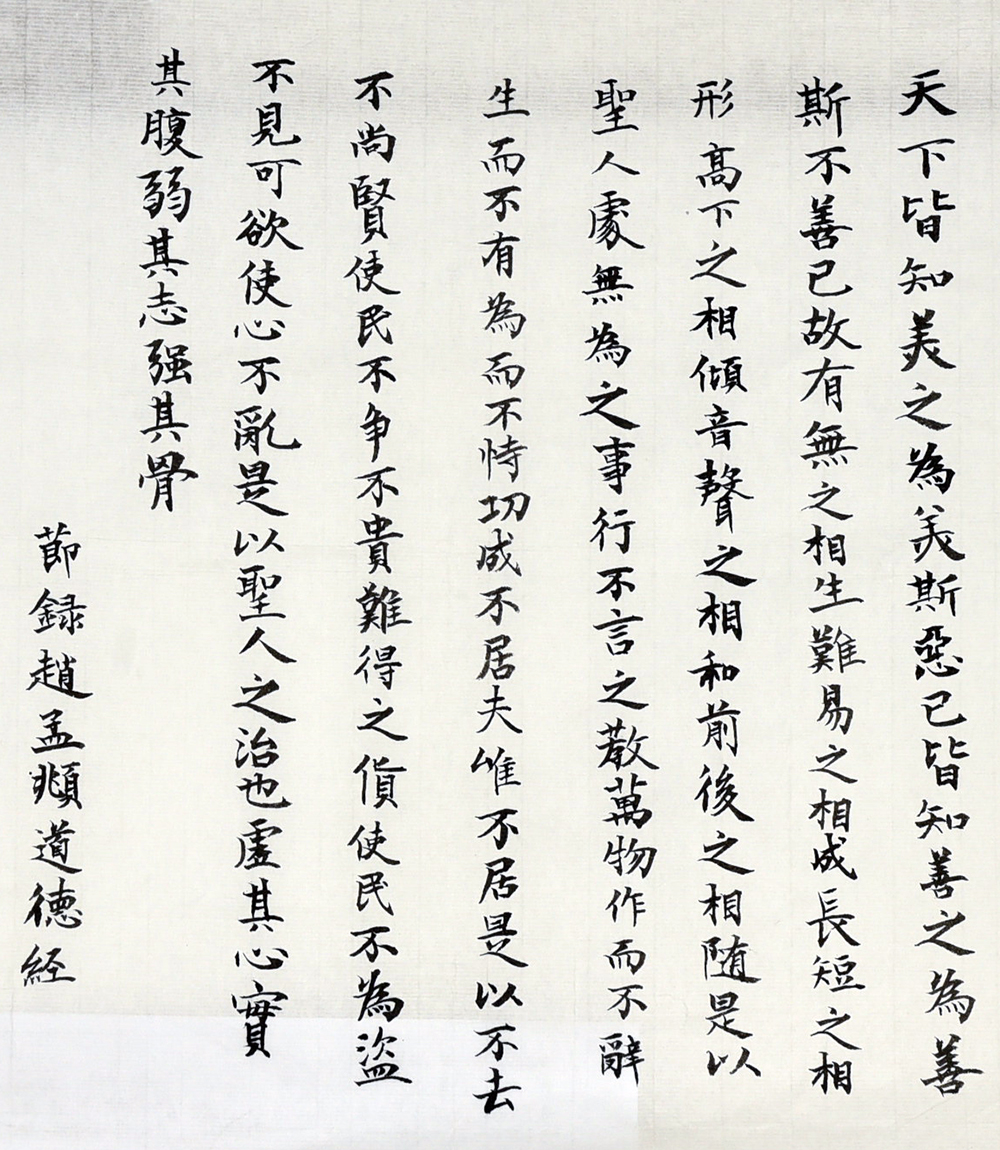 天下皆知美之為美斯惡已皆知善之為善
斯不善已故有無之相生難易之相成長短之相
形高下之相傾音聲之相和前後之相随是以
聖人處無為之事行不言之教萬物作而不辭
生而不有為而不恃功成不居夫唯不居是以不去
不尚賢使民不争不貴難得之貨使民不為盜
不見可欲使心不亂是以聖人之治也虛其心實
其腹弱其志强其骨
節録趙孟頫道德経